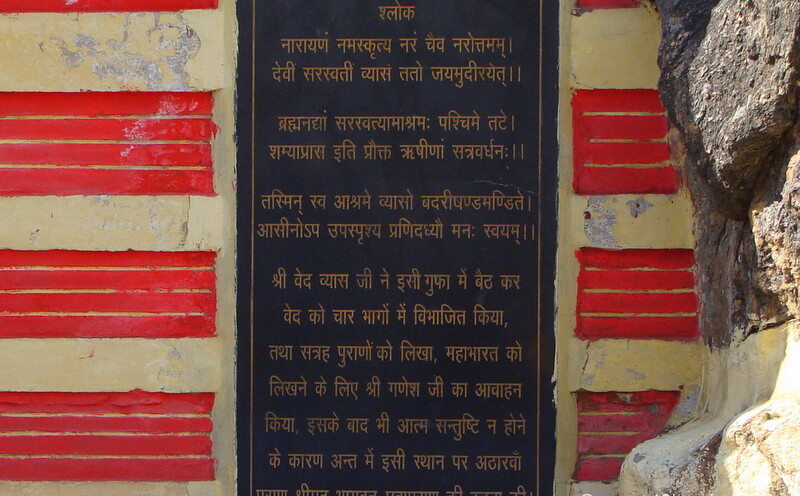 श्लोक
नारायणं नमस्कृत्य नरं चैव नरोत्तमम्।
देवीं सरस्वतीं व्यासं ततो जयमुदीरयेत्।।
ब्रह्मनद्यां सरस्वत्यामाश्रमः पश्चिमे तटे।
शम्याप्रास इति प्रौक्त ऋषीणां सत्रवर्धनः।।
तस्मिन् स्व आश्रमे व्यासो बदरीषण्डमण्डिते।
आसीनोऽप उपस्पृश्य प्रणिदध्यौ मनः स्वयम्।।
श्री वेद व्यास जी ने इसी गुफा में बैठ कर
वेद को चार भागों में विभाजित किया,
तथा सत्रह पुराणों को लिखा, महाभारत को
लिखने के लिए श्री गणेश जी का आवाहन
किया, इसके बाद भी आत्म सन्तुष्टि न होने
के कारण अन्त में इसी स्थान पर अठारवाँ